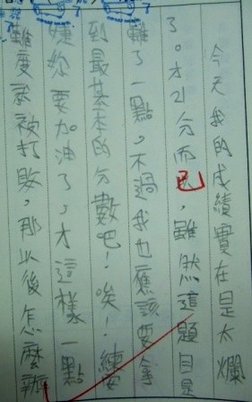 今天我的成績實在是太爛
了。才21分而已,雖然這題目是
難了一點,不過我也應該要拿
到最基本的分數吧!唉!
妳要加油了,才這樣一點
難度就被打敗,那以後怎麼辦